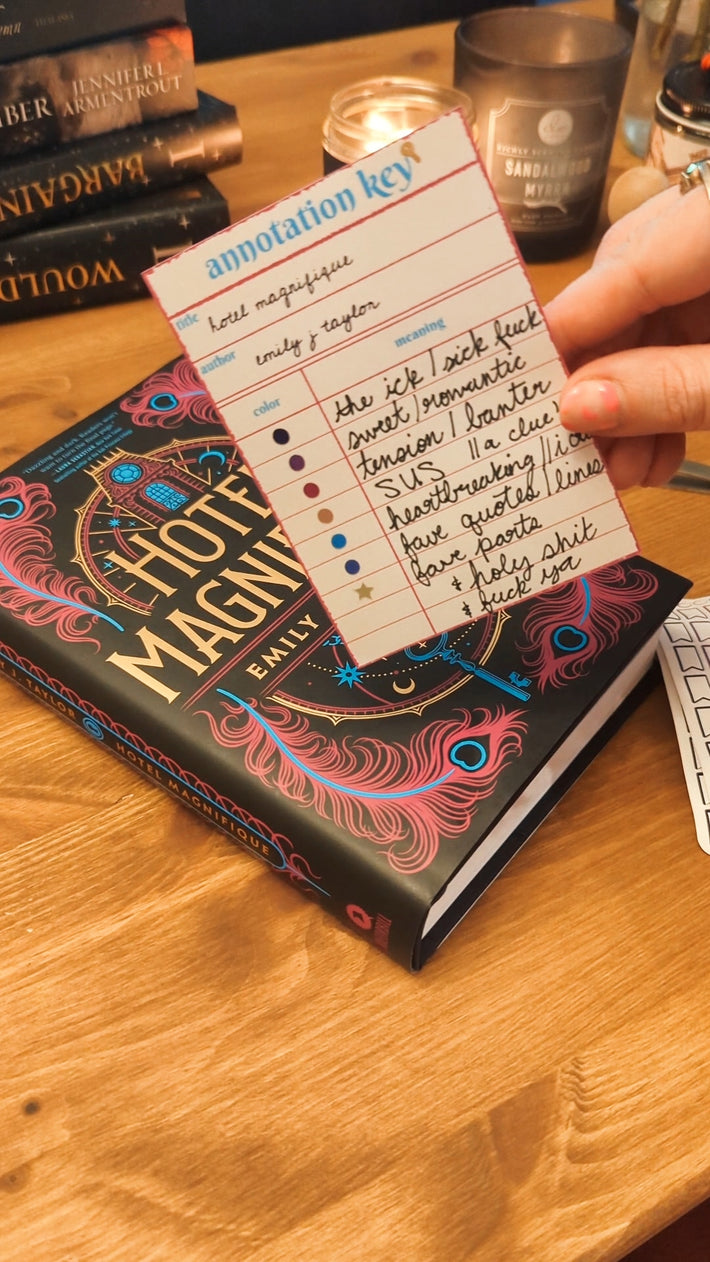 HELANIA
JENNIFER L.
ARMENTROUT
BARGAIN
WOULD
SANDALWOOD
MYRRH
annotation key
title hotel magnifique
author emily j taylor
color meaning
the ick / sick fuck
sweet / romantic
tension / banter
SUS || a clue?
heartbreaking || i
fave quotes / lines
fave parts
& holy shit
& fuck ya
"Dazzling and dark. Readers won't
want to turn the final page."
HOTEL
MAGNI
EMILY
J. TAYLOR
HOTEL MAGNIFIQUE